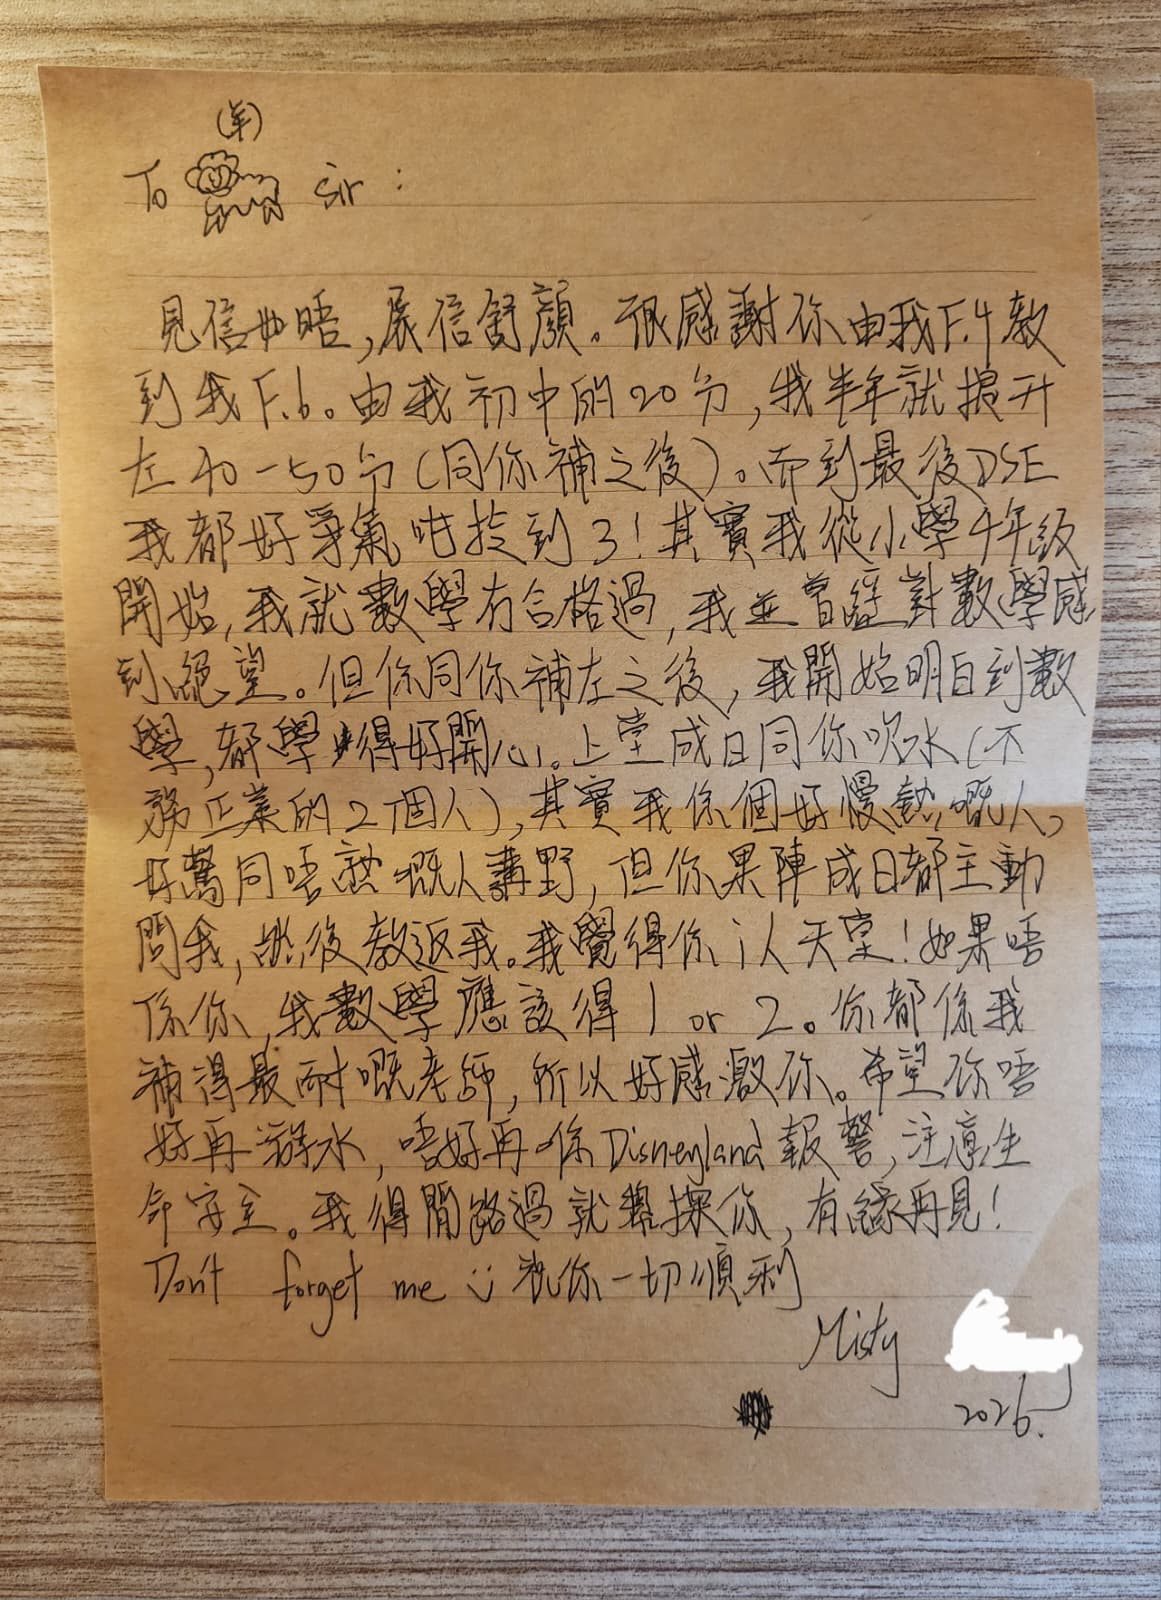 (羊)
To sir :
見信如晤，展信舒顏。很感謝你由我F.4教
到我F.6。由我初中的20分，我半年就提升
左40-50分(同你補之後)。而到最後DSE
我都好爭氣咁拎到3！其實我從小學4年級
開始，我就數學冇合格過，我並曾經對數學感
到絕望。但係同你補左之後，我開始明白到數
學，都學得好開心。上堂成日同你吹水(不
務正業的2個人)，其實我係個好慢熱嘅人，
好驚同唔熟嘅人講野，但你果陣成日都主動
問我，然後教返我。我覺得你 i人天堂！如果唔
係你，我數學應該得1 or 2。你都係我
補得最耐嘅老師，所以好感激你。希望你唔
好再游水，唔好再喺Disneyland報警，注意生
命安全。我得閒路過就嚟探你，有緣再見！
Don't forget me 祝你一切順利
Misty
2026.